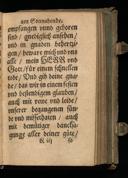 am Sonnabende.
empfangen vnnd geboren
sind / gnediglich ansehen /
vnd in gnaden behertzi-
gen / beware mich vnd vns
alle / mein HERR vnd
Gott / für einem schnellen
ende / Vnd gib deine gna-
de / das wir in einem festen
vnd bestendigen glauben /
auch mit rewe vnd leide /
unserer begangenen sün-
de vnd missethaten / auch
mit demütiger danck-
sagung aller deiner güte /